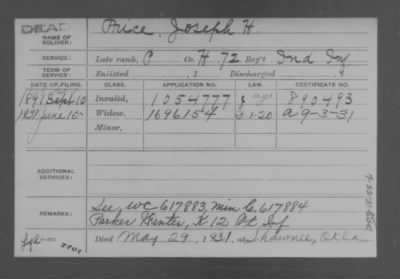 DEAD
NAME OF SOLDIER: Price, Joseph H.
SERVICE: Late rank, P Co. H. 72 Reg't Ind Inf
TERM OF SERVICE: Enlisted , 1 Discharged , 1
DATE OF FILING. CLASS. APPLICATION NO. LAW. CERTIFICATE NO.
1891 Sept 10 Invalid, 1054777 890493
1931 June 10 Widow, 1696154 5-1-20 a 9-3-31
Minor,
ADDITIONAL SERVICES:
REMARKS: See, WC 617883, Min C. 617884
Parker Winter, K 12 Inf
Died May 29, 1931, at Shawnee, Okla